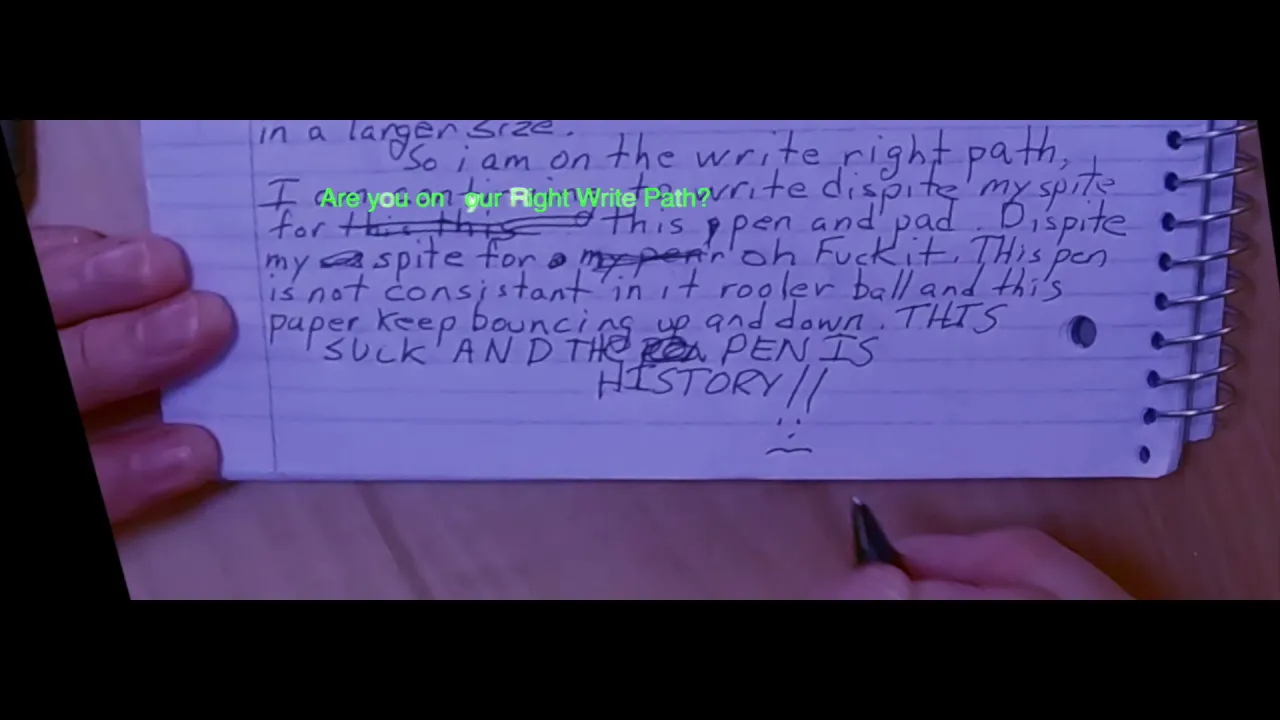 in a larger size.
So i am on the write right path,
I write dispite my spite
Are you on our Right Write Path?
for this this this pen and pad. Dispite
my spite for my pen oh Fuck it. THis pen
is not consistant in it rooler ball and this
paper keep bouncing up and down. THIS
SUCK AND THE PEN IS
HISTORY!!